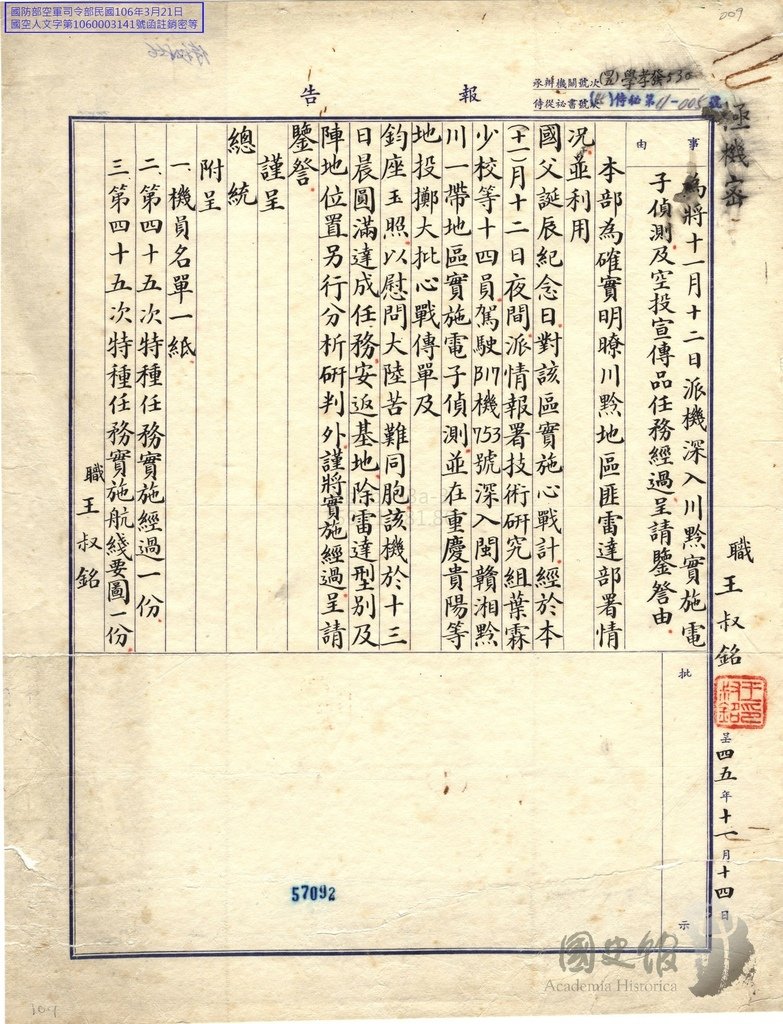 國防部空軍司令部民國106年3月21日
國空人文字第1060003141號函註銷密等
009
報告
承辦機關號次(呈)學孝發530
侍從祕書號次 侍秘第11-005號
極機密
事由
為將十一月十二日派機深入川黔實施電
子偵測及空投宣傳品任務經過呈請鑒詧由
職王叔銘
呈四五年十一月十四日
本部為確實明瞭川黔地區匪雷達部署情
況並利用
國父誕辰紀念日對該區實施心戰計經於本
(十一)月十二日夜間派情報署技術研究組葉霖
少校等十四員駕駛B17機753號深入閩贛湘黔
川一帶地區實施電子偵測並在重慶貴陽等
地投擲大批心戰傳單及
鈞座玉照以慰問大陸苦難同胞該機於十三
日晨圓滿達成任務安返基地除雷達型別及
陣地位置另行分析研判外謹將實施經過呈請
鑒詧
謹呈
總統
附呈
一、機員名單一紙
二、第四十五次特種任務實施經過一份
三、第四十五次特種任務實施航綫要圖一份
職王叔銘
批示
57092
國史館
Academia Historica